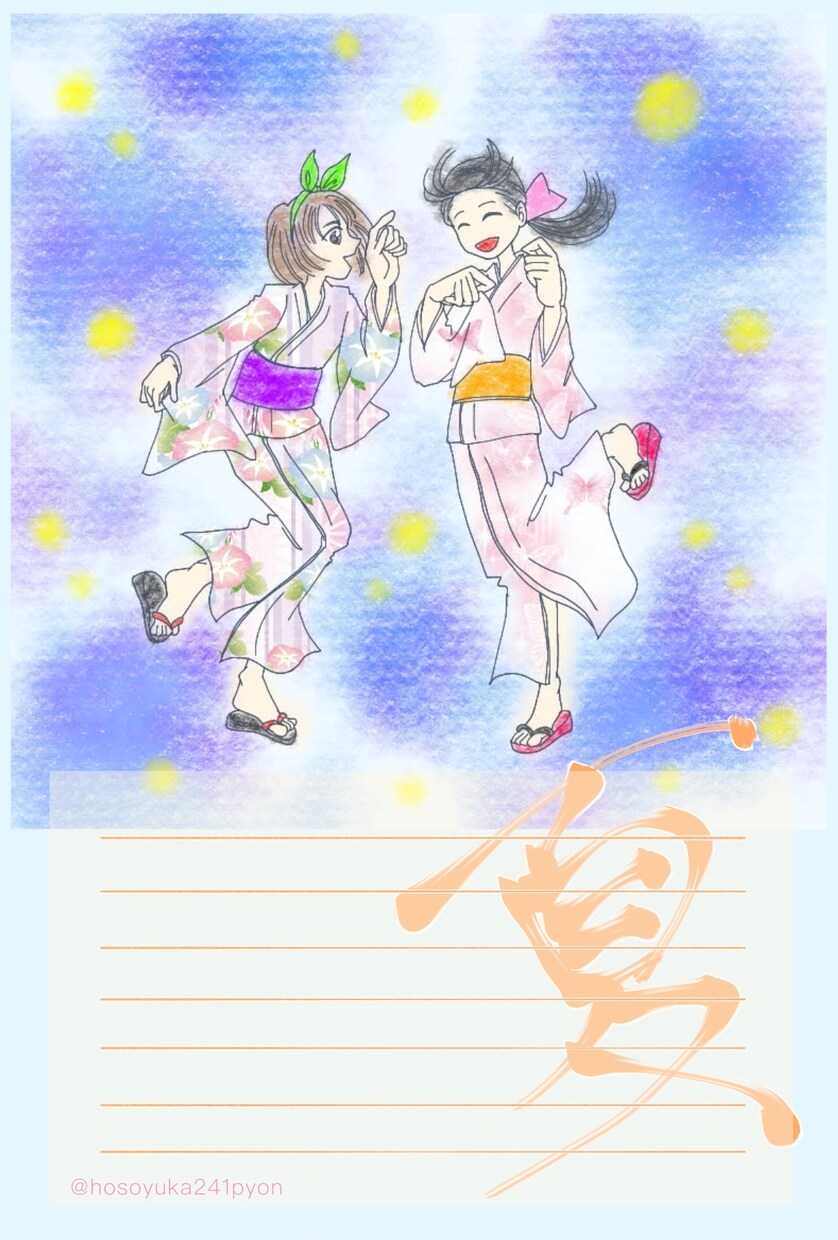 夏
@hosoyuka241pyon